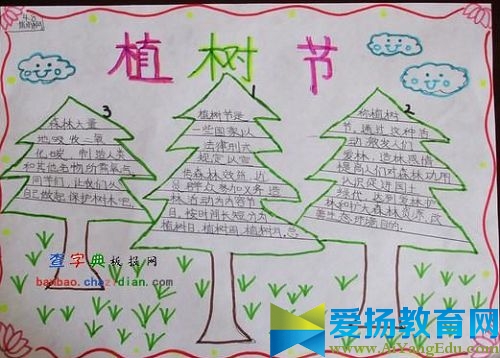 植树节
1
植树节是
一些国家以
法律形式
规定以宣
传森林效益,动
员群众参加义务造
林活动为内容节
日,按时间长短分为
植树日,植树周,植树月,总
2
称植树
节,通过这种活
动,激发人们
爱林,造林感情,
提高人们对森林功用
认识,促进国土
绿化,达到爱林护
林和扩大森林资源,改
善生态环境目的,
3
森林大量
地吸收二氧
化碳,制造人类
和其他生物所需氧气,
同学们,让我们从
自己做起,保护树木吧
查字典板报网
banbao.chazidian.com
爱扬教育网
www.AiYangEdu.com